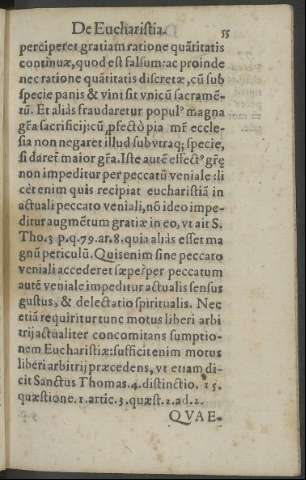 De Eucharistia. 55
perciperet gratiam ratione quãtitatis
continuæ, quod est falsum: ac proinde
nec ratione quãtitatis discretæ, cũ sub
specie panis & vini sit vnicũ sacramẽ-
tũ. Et aliàs fraudaretur popul⁹ magna
gr̃a sacrificij: cũ, ꝓfectò pia mr̃ eccle-
sia non negaret illud sub vtraq; specie,
si daret̃ maior gr̃a. Iste autẽ effect⁹ gr̃ę
non impeditur per peccatũ veniale: li
cèt enim quis recipiat eucharistiã in
actuali peccato veniali, nõ ideo impe-
ditur augmẽtum gratiæ in eo, vt ait S.
Tho. 3 p. q. 79. ar. 8. quia aliàs esset ma
gnũ periculũ. Quis enim sine peccato
veniali accederet sæpe? per peccatum
autẽ veniale impeditur actualis sensus
gustus, & delectatio spiritualis. Nec
etiã requiritur tunc motus liberi arbi
trij actualiter concomitans sumptio-
nem Eucharistiæ: sufficit enim motus
liberi arbitrij præcedens, vt etiam di-
cit Sanctus Thomas. 4. distinctio. 15.
quæstione. 1. artic. 3. quæst. 2. ad. 2.
QVAE-